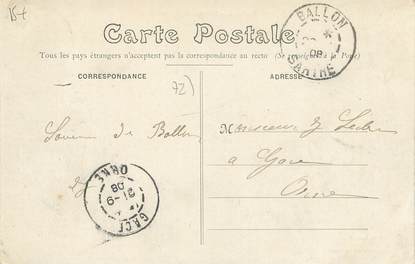 Carte Postale
Tous les pays étrangers n'acceptent pas la correspondance au recto (Se renseigner à la Poste)
CORRESPONDANCE
ADRESSE
72)
BALLON
08
SARTHE
Souvenir de Ballon
Monsieur
a Gacé
Orne
ORNE
31-9
08
GACÉ